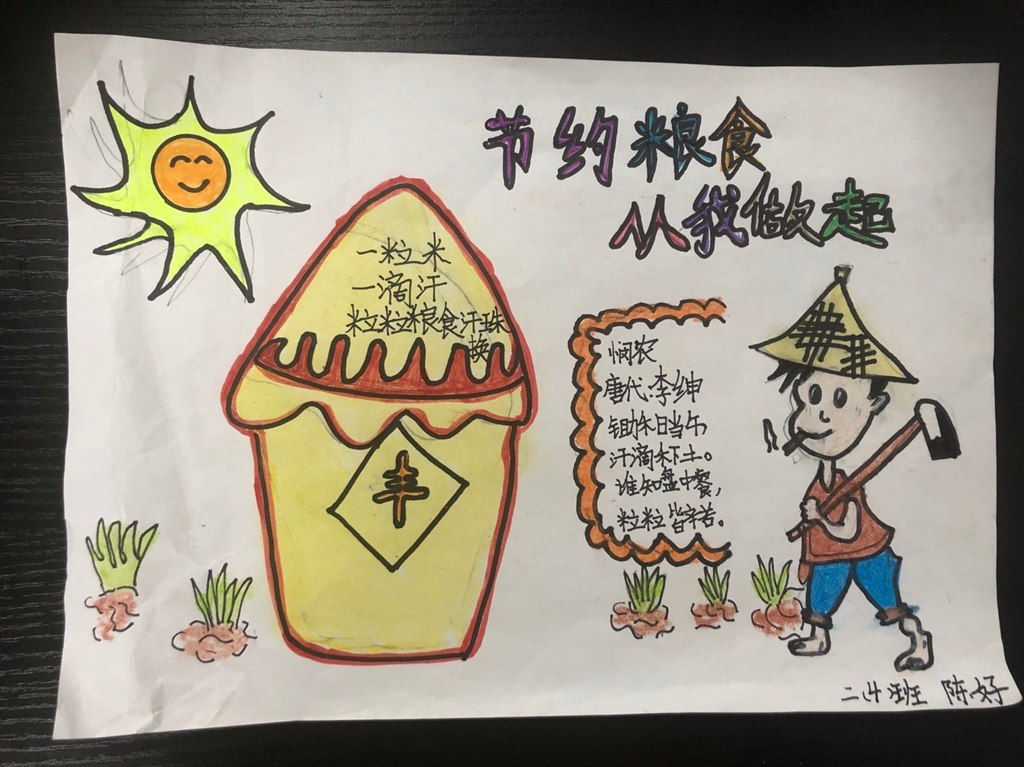 节约粮食
从我做起
一粒米
一滴汗
粒粒粮食汗珠
换
丰
悯农
唐代:李绅
锄禾日当午
汗滴禾下土。
谁知盘中餐,
粒粒皆辛苦。
二4班 陈好